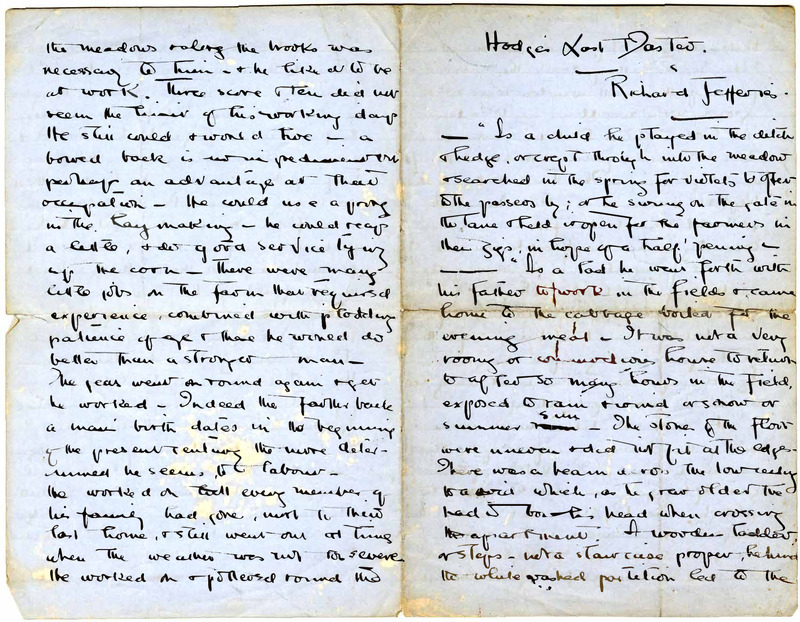 the meadows & along the brooks was
necessary to him - & he liked to be
at work. Three score & ten did not
seem the limit of his working days
He still could & would hoe - a
bowed back is no impediment but
perhaps an advantage at that
occupation - He could use a prong
in the haymaking - he could reap
a little, & do good service tying
up the corn - There were many
little jobs on the farm that required
experience, combined with plodding
patience of age & these he would do
better than a stronger man -
The year went on round again & yet
he worked - Indeed the farther back
a man's birth dates in the beginning
of the present century the more deter-
mined he seems to labour -
He worked on till every member of
his family had gone, most to their
last home, & still went out at times
when the weather was not too severe
He worked on & pottered round the
Hodge's Last Master.
Richard Jefferies.
- "As a child he played in the ditch
& hedge, or crept through into the meadow
& searched in the spring for violets to offer
to the passers by; or he swung on the gate in
the lane & held it open for the farmers in
their gigs, in hope of a half penny -
"As a lad he went forth with
his father to work in the fields & came
home to the cabbage boiled for the
evening meal - It was not a very
roomy or commodious house to return
to after so many hours in the field,
exposed to rain & wind or snow or
summer sun - The stones of the floor
were uneven & did not fit at the edges -
There was a beam across the low ceiling
to avoid which, as he grew older he
had to bow his head when crossing
the apartment. A wooden ladder
or steps - not a staircase proper, behind
the whitewashed partition led to the